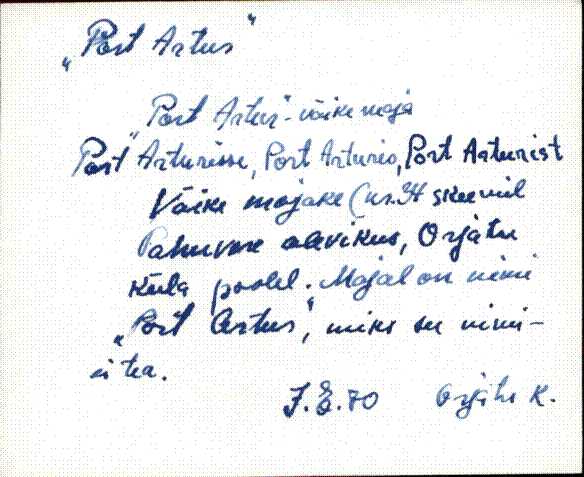 „Port Artur"
„Port Artur" - väike maja
Port Arturisse, Port Arturis, Port Arturist
Väike majake (nr. 34 skeemil
alevikus, Orjaku
küla poolel. Majal on nimi
„Port Artur", miks see nimi -
ei tea.
J.E.70 Orjaku k.